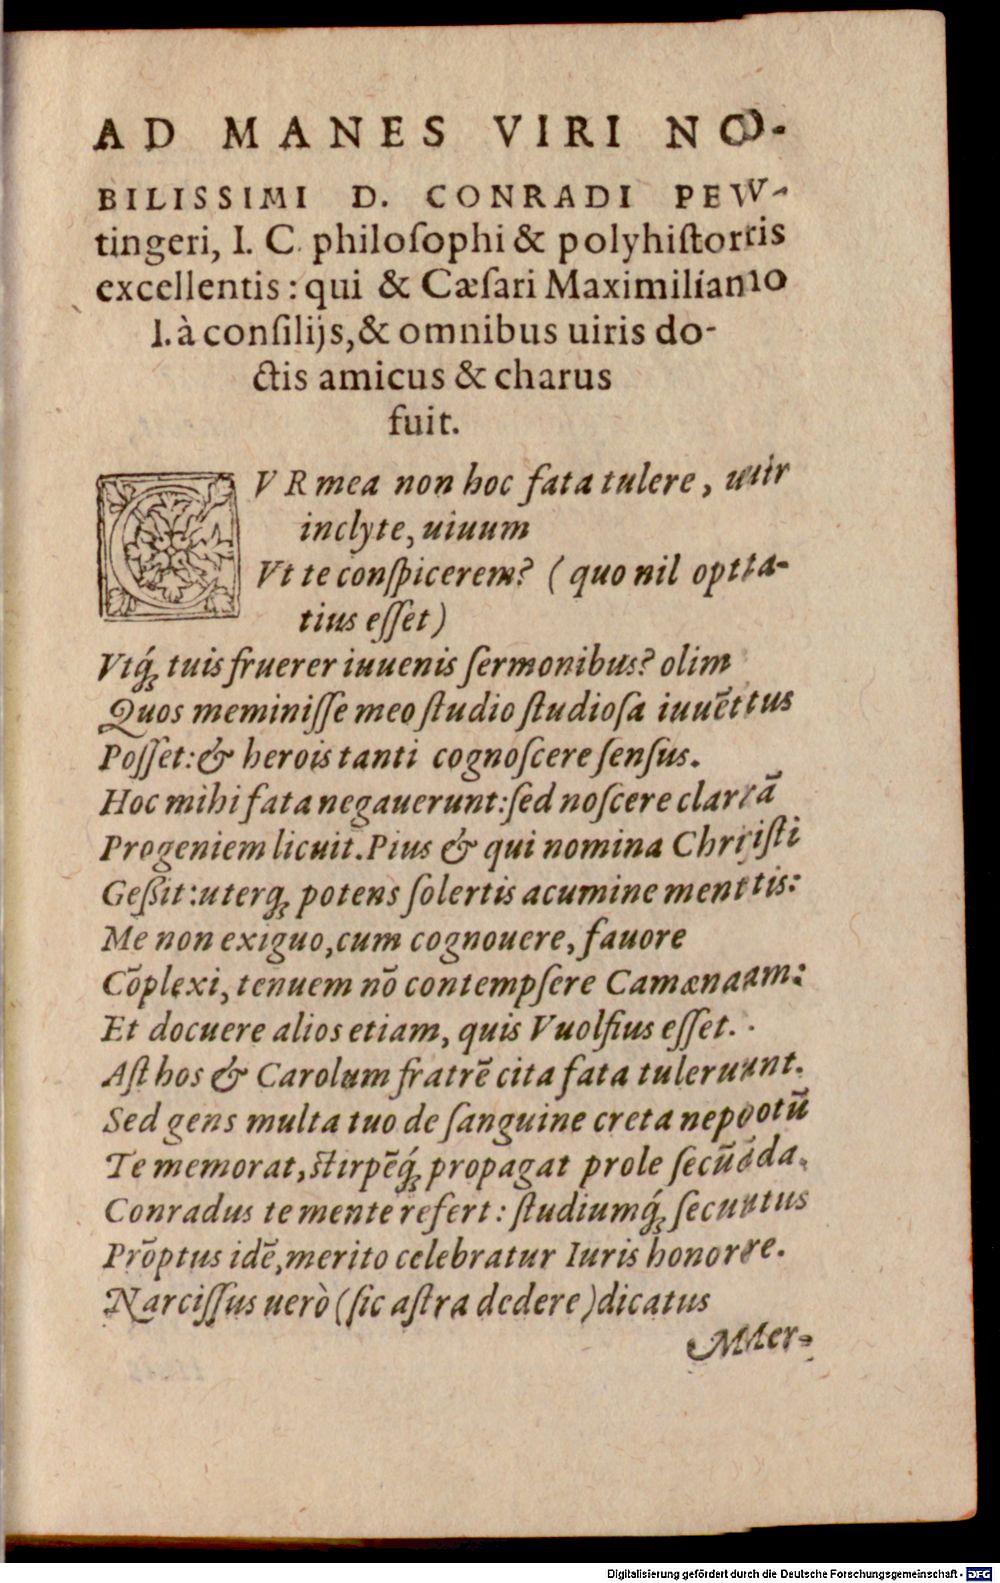 AD MANES VIRI NO-
BILISSIMI D. CONRADI PEV-
tingeri, I. C. philoſophi & polyhiſtoris
excellentis: qui & Cæſari Maximiliano
I. à conſilijs, & omnibus uiris do-
ctis amicus & charus
fuit.
CVR mea non hoc fata tulere, uir
inclyte, uiuum
Vt te conſpicerem? (quo nil opta-
tius eſſet)
Vtq́ꝫ tuis fruerer iuuenis ſermonibus? olim
Quos meminiſſe meo ſtudio ſtudioſa iuuẽtus
Poſſet: & herois tanti cognoſcere ſenſus.
Hoc mihi fata negauerunt: ſed noſcere clarã
Progeniem licuit. Pius & qui nomina Chriſti
Geßit: uterqꝫ potens ſolertis acumine mentis:
Me non exiguo, cum cognouere, fauore
Cõplexi, tenuem nõ contempſere Camœnam:
Et docuere alios etiam, quis Vuolfius eſſet.
Aſt hos & Carolum fratrẽ cita fata tulerunt.
Sed gens multa tuo de ſanguine creta nepotũ
Te memorat, ſtirpẽq́ꝫ propagat prole ſecũda.
Conradus te mente refert: ſtudiumq́ꝫ ſecutus
Prõptus idẽ, merito celebratur Iuris honore.
Narciſſus uerò (ſic aſtra dedere) dicatus
Mer-
Digitalisierung gefördert durch die Deutsche Forschungsgemeinschaft - DFG